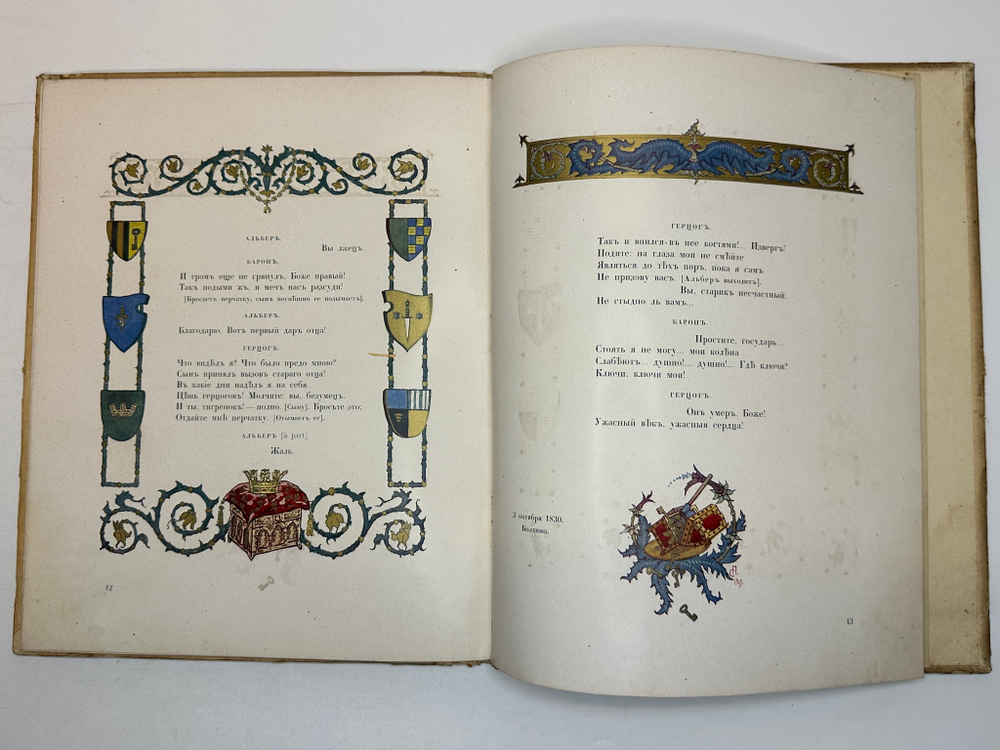 АЛЬБЕРЪ.
Вы лжецъ.
БАРОНЪ.
И громъ еще не грянулъ, Боже правый!
Такъ подыми жъ, и мечъ насъ разсуди!
[Бросаетъ перчатку, сынъ поспѣшно ее подымаетъ].
АЛЬБЕРЪ.
Благодарю. Вотъ первый даръ отца!
ГЕРЦОГЪ.
Что видѣлъ я? Что было предо мною?
Сынъ принялъ вызовъ стараго отца!
Въ какіе дни надѣлъ я на себя
Цѣпь герцоговъ! Молчите: вы, безумецъ,
И ты, тигренокъ! — полно. [Сыну]. Бросьте это;
Отдайте мнѣ перчатку. [Отымаетъ ее].
АЛЬБЕРЪ [à part]
Жаль.
42
ГЕРЦОГЪ.
Такъ и впился въ нее когтями!... Извергъ!
Подите: на глаза мои не смѣйте
Являться до тѣхъ поръ, пока я самъ
Не призову васъ. [Альберъ выходитъ].
Вы, старикъ несчастный,
Не стыдно ль вамъ...
БАРОНЪ.
Простите, государь...
Стоять я не могу... мои колѣна
Слабѣютъ... душно!... душно!... Гдѣ ключи?
Ключи, ключи мои!
ГЕРЦОГЪ.
Онъ умеръ. Боже!
Ужасный вѣкъ, ужасныя сердца!
3 октября 1830.
Болдино.
43